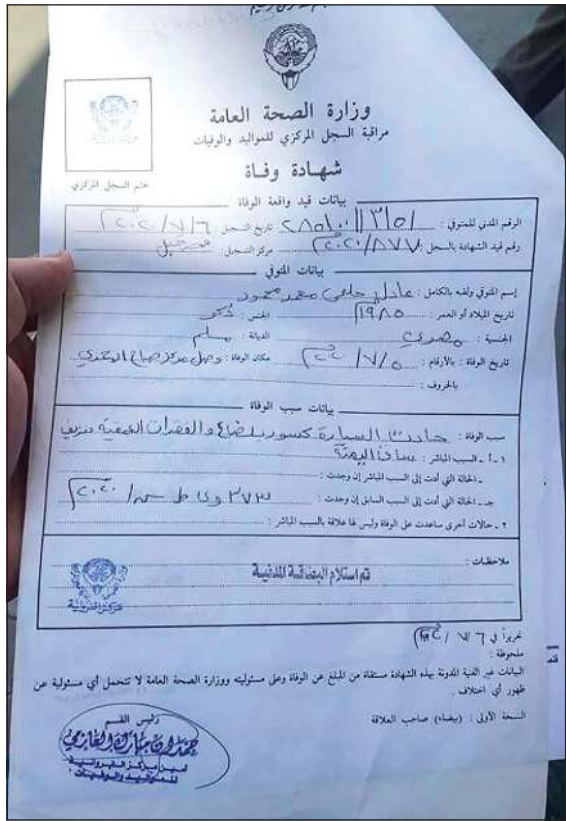 وزارة الصحة العامة
مراقبة السجل المركزي للمواليد والوفيات
شهادة وفاة
ختم السجل المركزي
بيانات قيد واقعة الوفاة
الرقم المدني للمتوفي : تاريخ التسجيل : ٢٠٢٠/٧/٦
رقم قيد الشهادة بالسجل : ٢٠٢٠/٨٧٧ مركز التسجيل :
بيانات المتوفي
إسم المتوفي ولقبه بالكامل : عادل حلمي محمد محمود
تاريخ الميلاد أو العمر : ١٩٨٥ الجنس : ذكر
الجنسية : مصري الديانة : مسلم
تاريخ الوفاة : بالأرقام : ٢٠٢٠/٧/٥ مكان الوفاة : وصل مركز صباح
بالحروف :
بيانات سبب الوفاة
سبب الوفاة : حادث السيارة كسور بلضلع والفقرات العنقية نزيف
١ - أ - السبب المباشر :
- الحالة التي أدت إلى السبب المباشر إن وجدت :
جـ - الحالة التي أدت إلى السبب السابق إن وجدت : ٣٧٣
٢ - حالات أخرى ساعدت على الوفاة وليس لها علاقة بالسبب المباشر :
ملاحظات :
تم استلام البطاقة المدنية
تحريراً في ٧/٦
ملحوظة :
البيانات غير الفنية المدونة بهذه الشهادة مستقاة من المبلغ عن الوفاة وعلى مسئوليته ووزارة الصحة العامة لا تتحمل أي مسئولية عن
ظهور أي اختلاف .
النسخة الأولى : (بيضاء) صاحب العلاقة
رئيس القسم
للمواليد والوفيات